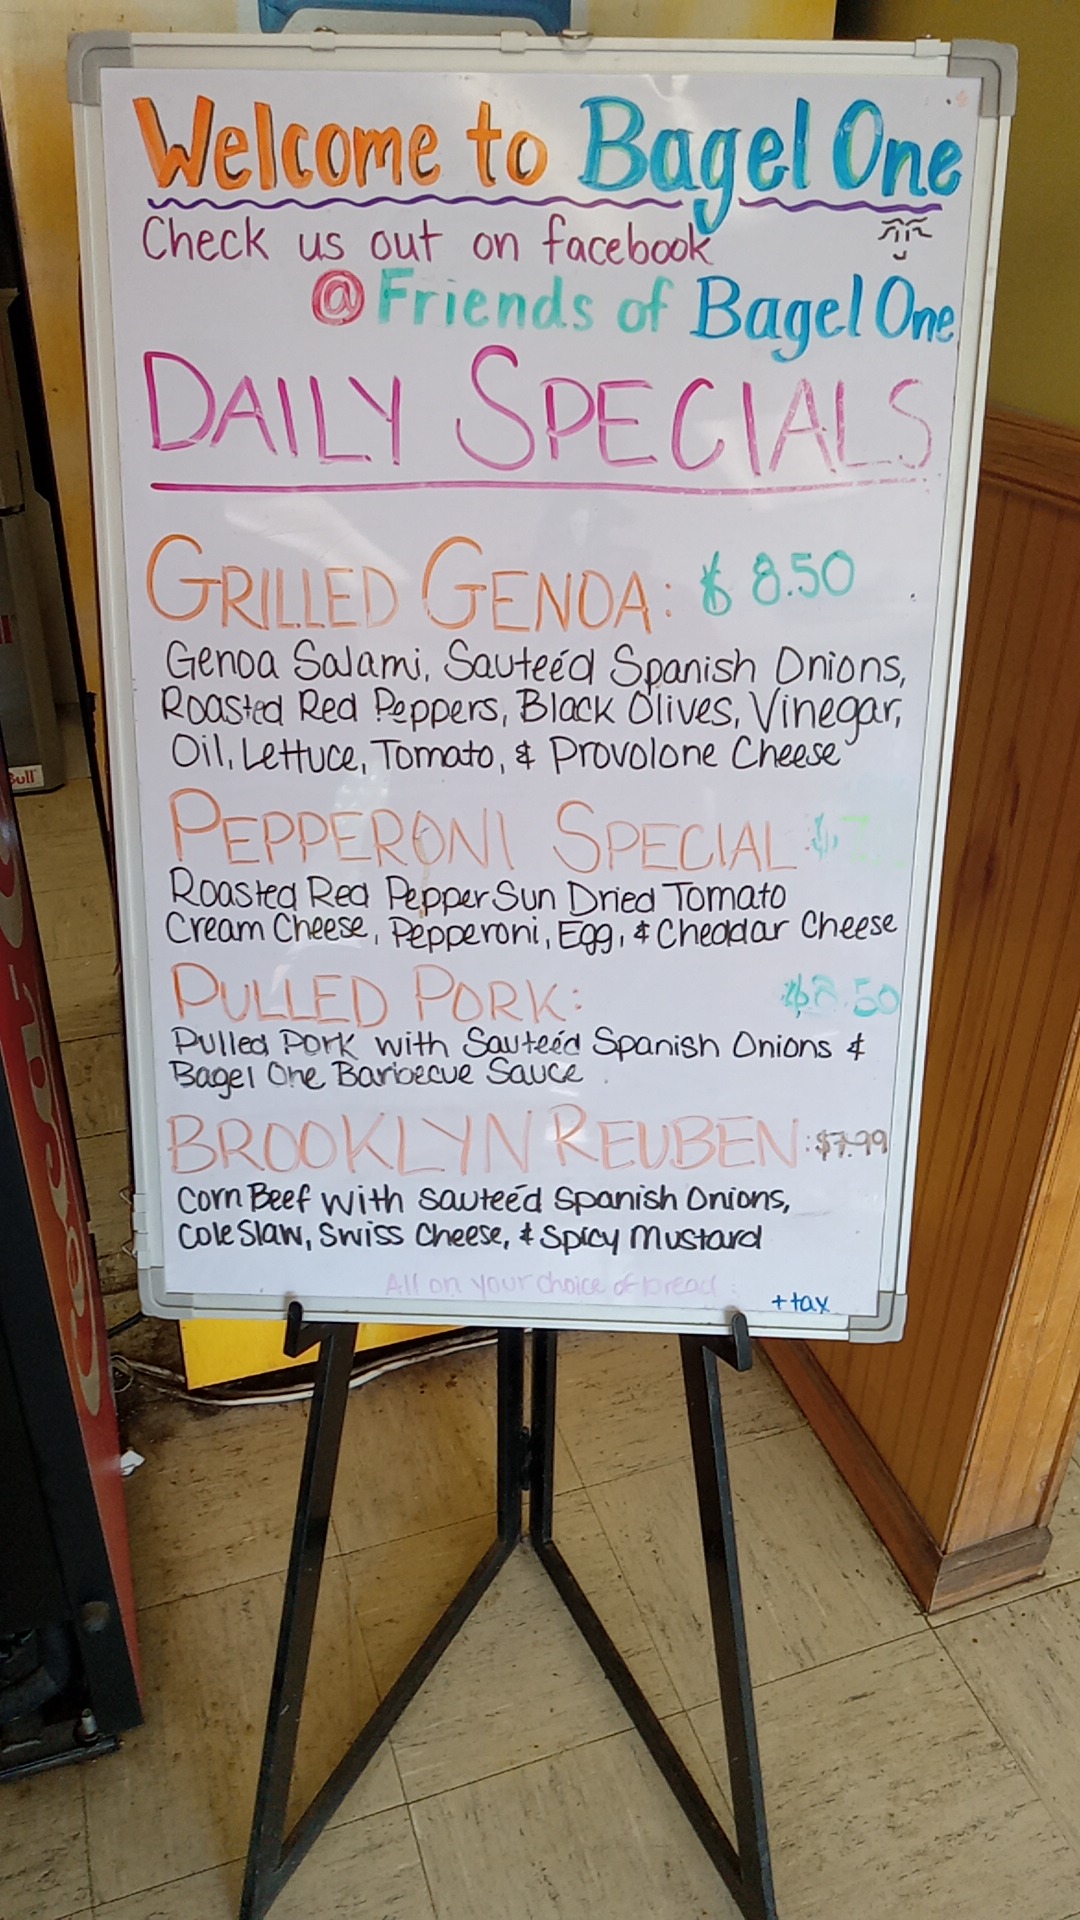 Welcome to Bagel One
Check us out on facebook
@Friends of Bagel One
DAILY SPECIALS
GRILLED GENOA: $8.50
Genoa Salami, Sauteéd Spanish Onions,
Roasted Red Peppers, Black Olives, Vinegar,
Oil, Lettuce, Tomato, & Provolone Cheese
PEPPERONI SPECIAL: $7
Roasted Red Pepper Sun Dried Tomato
Cream Cheese, Pepperoni, Egg, & Cheddar Cheese
PULLED PORK: $8.50
Pulled Pork with Sauteéd Spanish Onions &
Bagel One Barbecue Sauce
BROOKLYN REUBEN: $7.99
Corn Beef with Sauteéd Spanish Onions,
Cole Slaw, Swiss Cheese, & Spicy Mustard
All on your choice of bread
+ tax
Bull